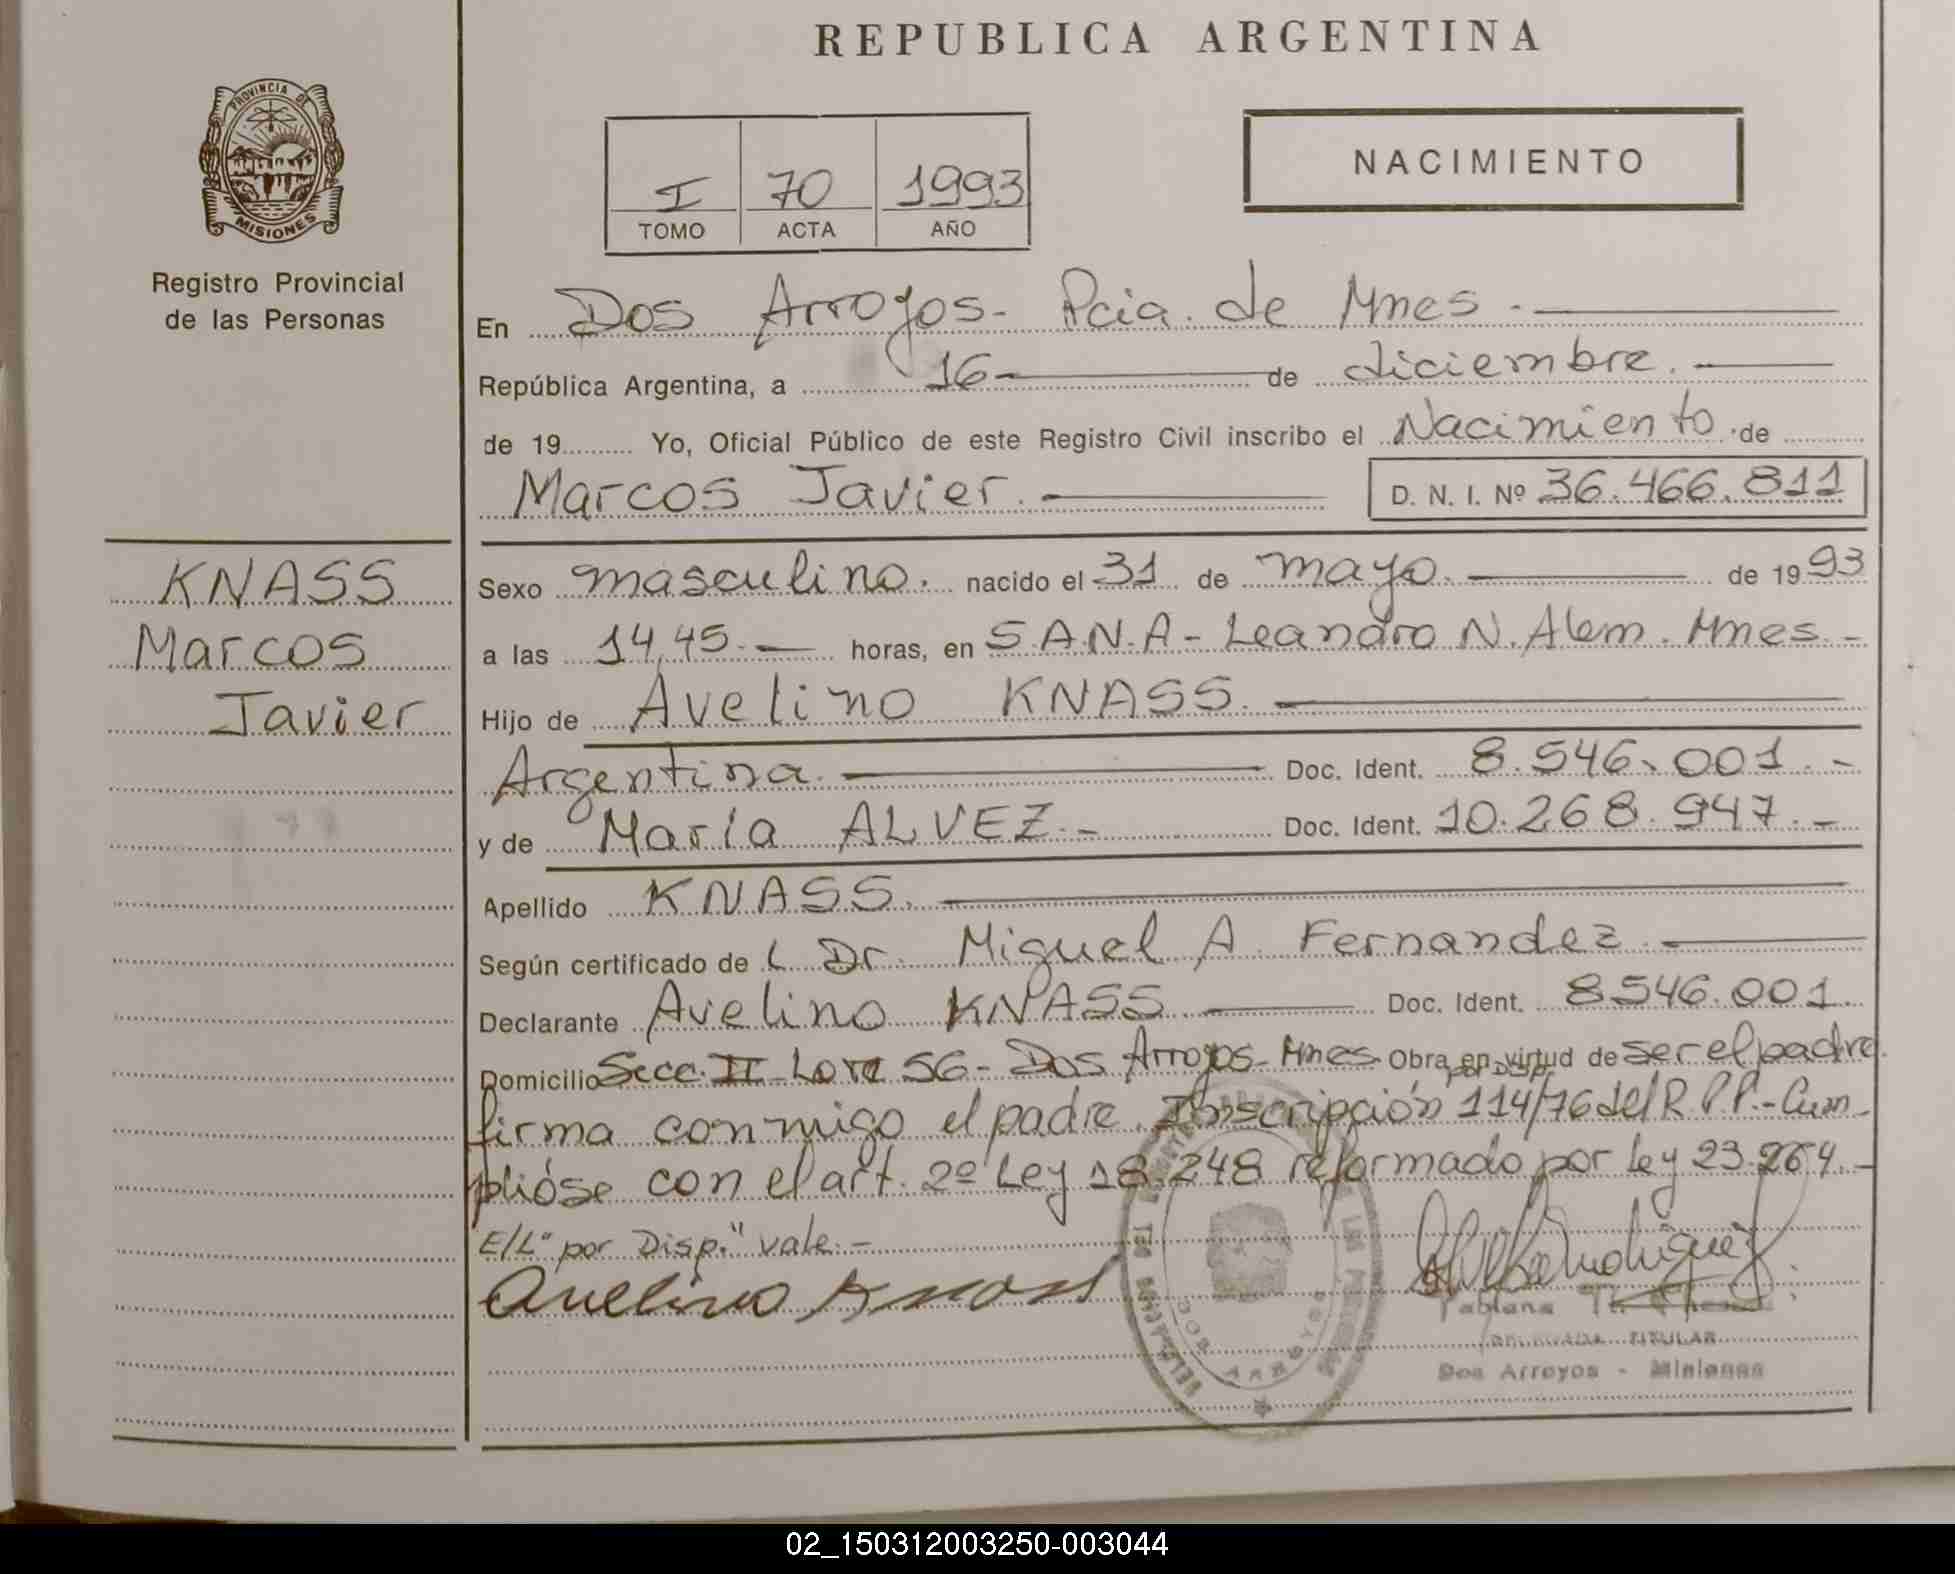 REPUBLICA ARGENTINA
PROVINCIA DE
MISIONES
Registro Provincial
de las Personas
I 70 1993
TOMO ACTA AÑO
NACIMIENTO
En Dos Arroyos - Pcia. de Mnes.-
República Argentina, a 16 de diciembre.
de 19 Yo, Oficial Público de este Registro Civil inscribo el Nacimiento de
Marcos Javier. D. N. I. Nº 36.466.811
KNASS
Marcos
Javier
Sexo masculino. nacido el 31 de mayo. de 1993
a las 14,45.- horas, en S.A.N.A - Leandro N. Alem. Mnes.-
Hijo de Avelino KNASS.
Argentina. Doc. Ident. 8.546.001.-
y de María ALVEZ.- Doc. Ident. 10.268.947.-
Apellido KNASS.
Según certificado de L Dr. Miguel A. Fernandez.
Declarante Avelino KNASS Doc. Ident. 8546.001.
Domicilio Secc. II Lote 56 - Dos Arroyos - Mnes. Obra en virtud de ser el padre.
por Disp.
firma conmigo el padre. Inscripción 114/76 del R.P.P.- Cum-
plióse con el art. 2º Ley 18.248 reformado por ley 23.264.-
E/L "por Disp." vale.-
Avelino Knass
Fabiana
DELEGADA TITULAR
Dos Arroyos - Misiones
DOS ARROYOS
02_150312003250-003044